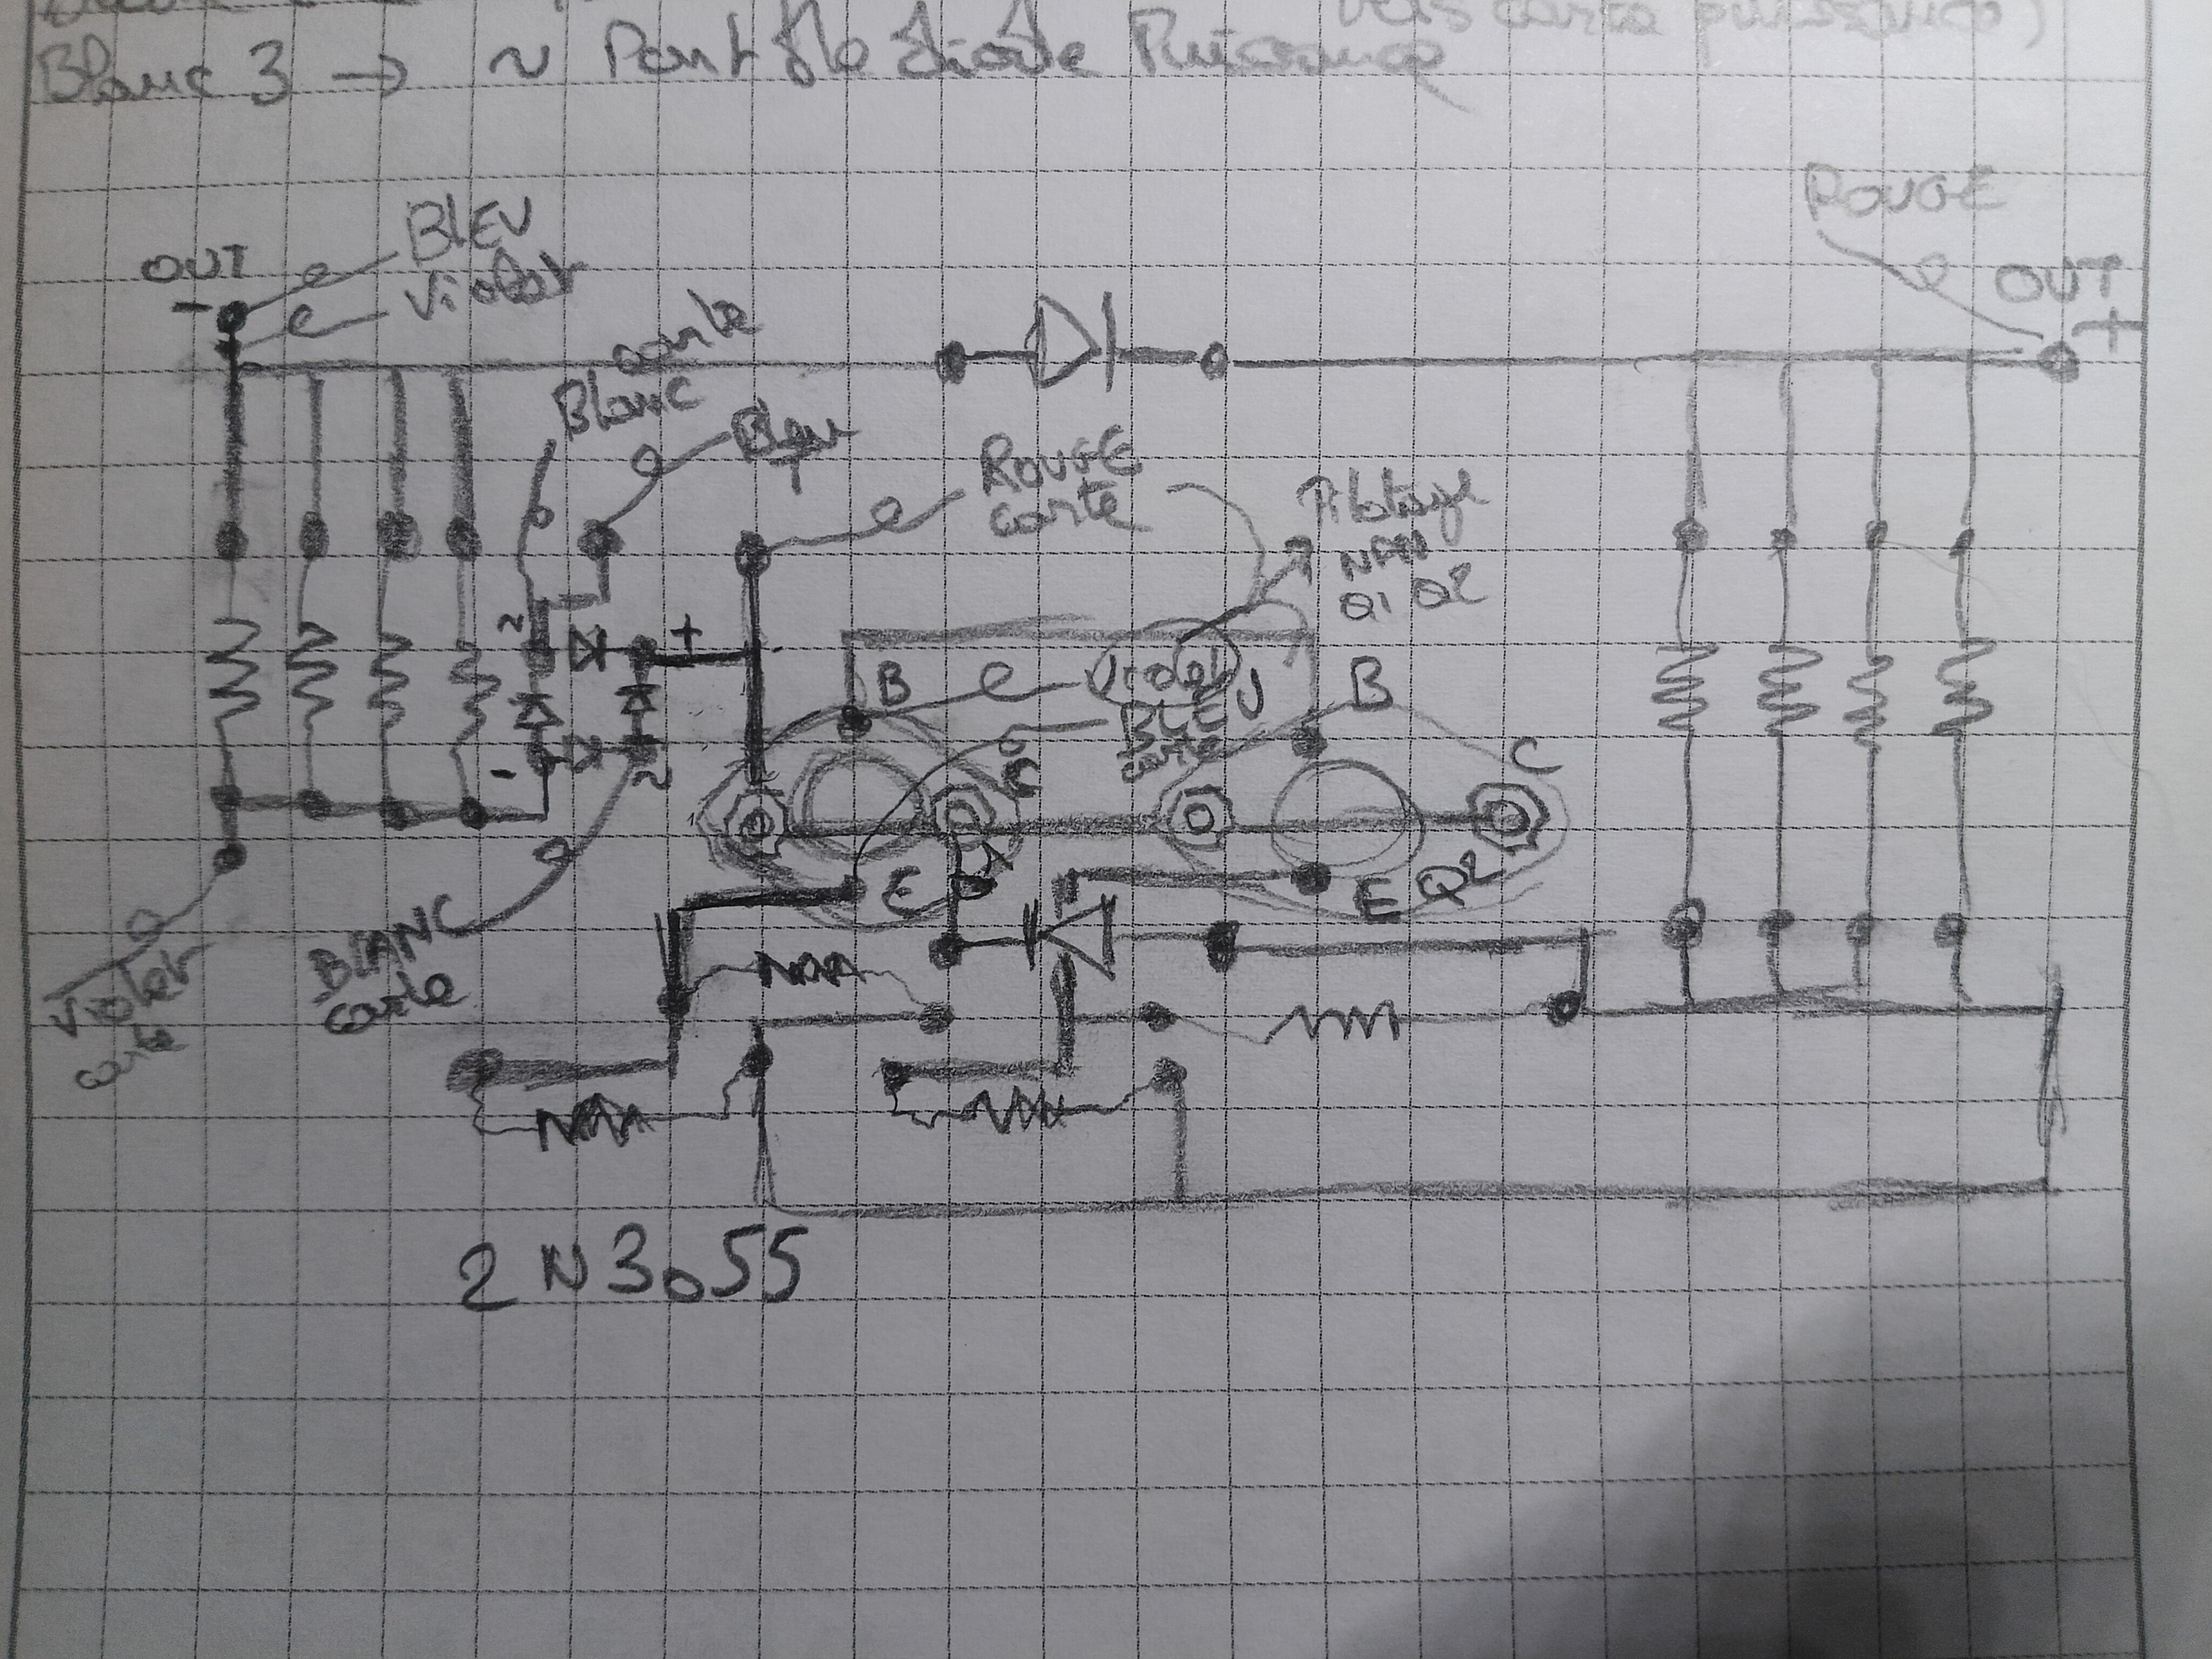 vers carte puissance)
Blanc 3 → ~ Pont de diode Puissance
ROUGE
BLEU
OUT
-
Violet
OUT
+
carte
Blanc
Bleu
T
ROUGE
carte
Pilotage
NPN
Q1 Q2
~
+
B
Violet
B
BLEU
carte
C
C
-
~
E
Q1
E Q2
BLANC
carte
Violet
carte
2N3055